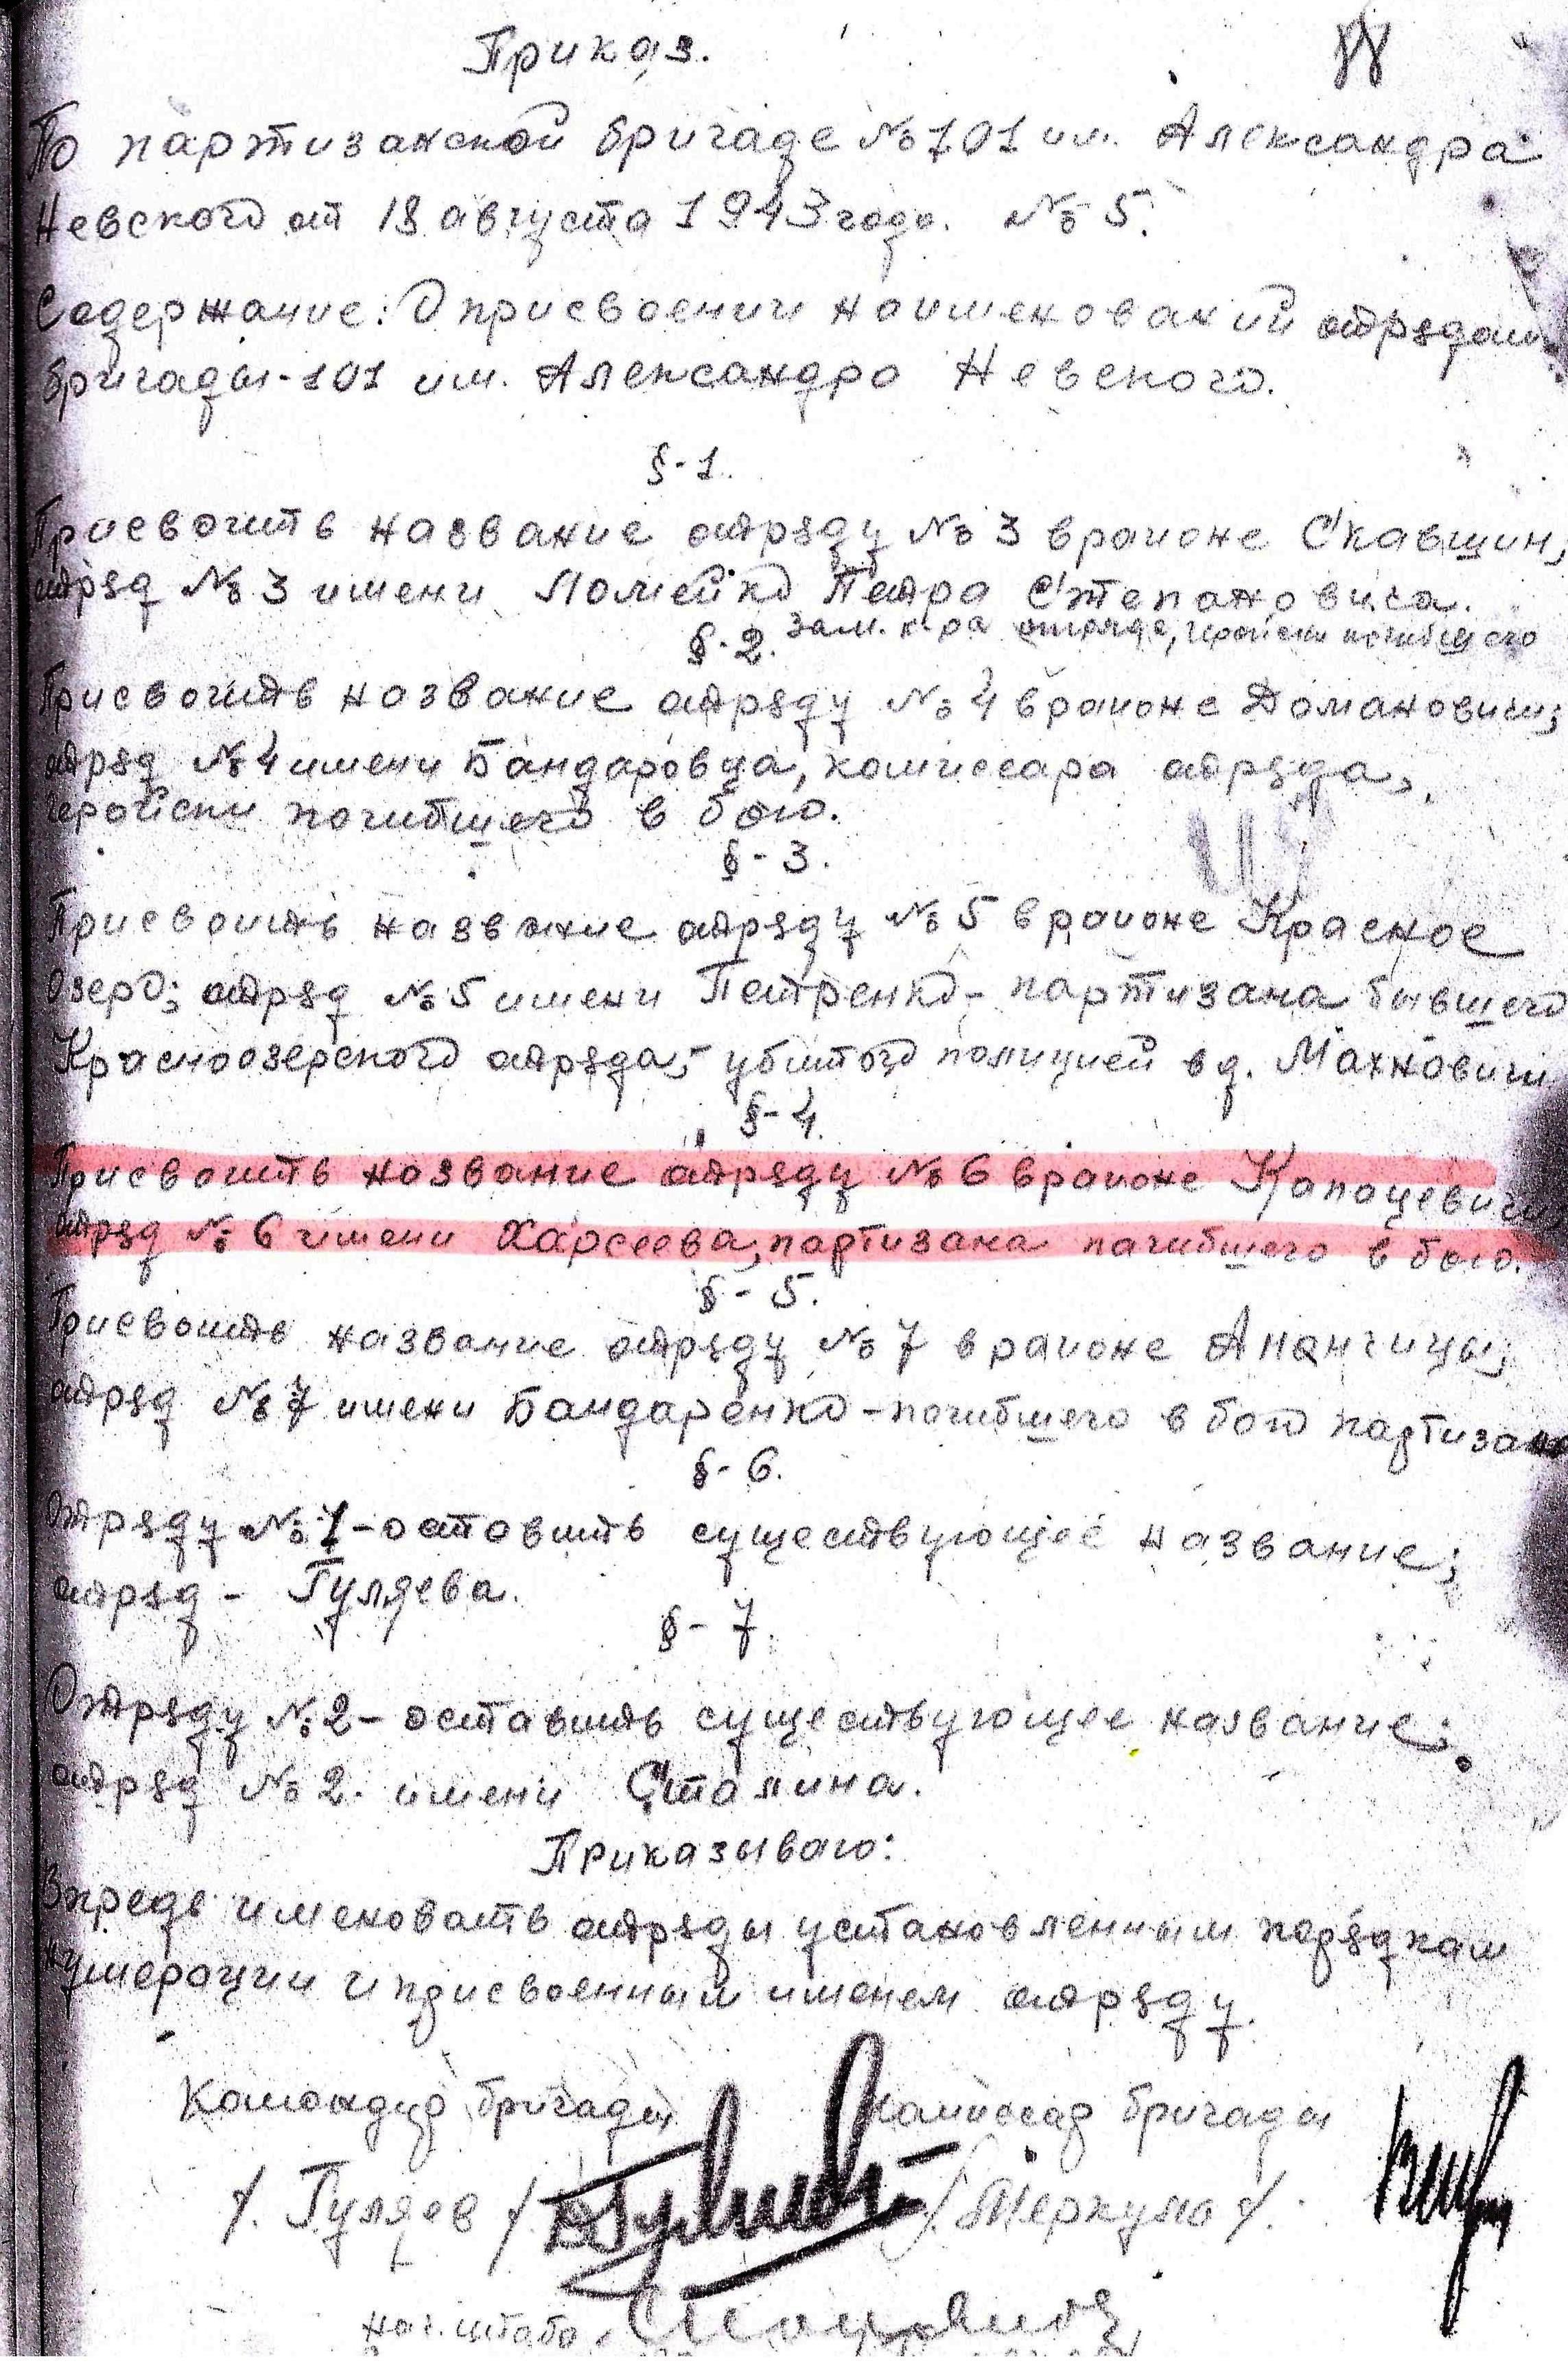 Приказ.
По партизанской бригаде №101 им. Александра
Невского от 18 августа 1943 года. № 5.
Содержание: О присвоении наименований отрядам
бригады-101 им. Александра Невского.
§-1.
Присвоить название отряду №3 в районе Скавшин;
отряд №3 имени Ломейко Петра Степановича.
зам. к-ра отряда, геройски погибшего
§-2.
Присвоить название отряду №4 в районе Домановичи;
отряд №4 имени Бандаровца, комиссара отряда,
геройски погибшего в бою.
§-3.
Присвоить название отряду №5 в районе Красное
Озеро; отряд №5 имени Петренко - партизана бывшего
Красноозерского отряда, убитого полицией в д. Махновичи
§-4.
Присвоить название отряду №6 в районе Копацевичи
отряд №6 имени Харсеева, партизана погибшего в бою.
§-5.
Присвоить название отряду №7 в районе Ананчицы;
отряд №7 имени Бандаренко - погибшего в бою партизана
§-6.
Отряду №1 - оставить существующее название;
отряд - Гуляева.
§-7.
Отряду №2 - оставить существующее название;
отряд №2. имени Сталина.
Приказываю:
Впредь именовать отряды установленным порядкам
нумерации и присвоенным именем отряду.
Командир бригады Комиссар бригады
/. Гуляев / /. Меркуль /.
нач. штаба